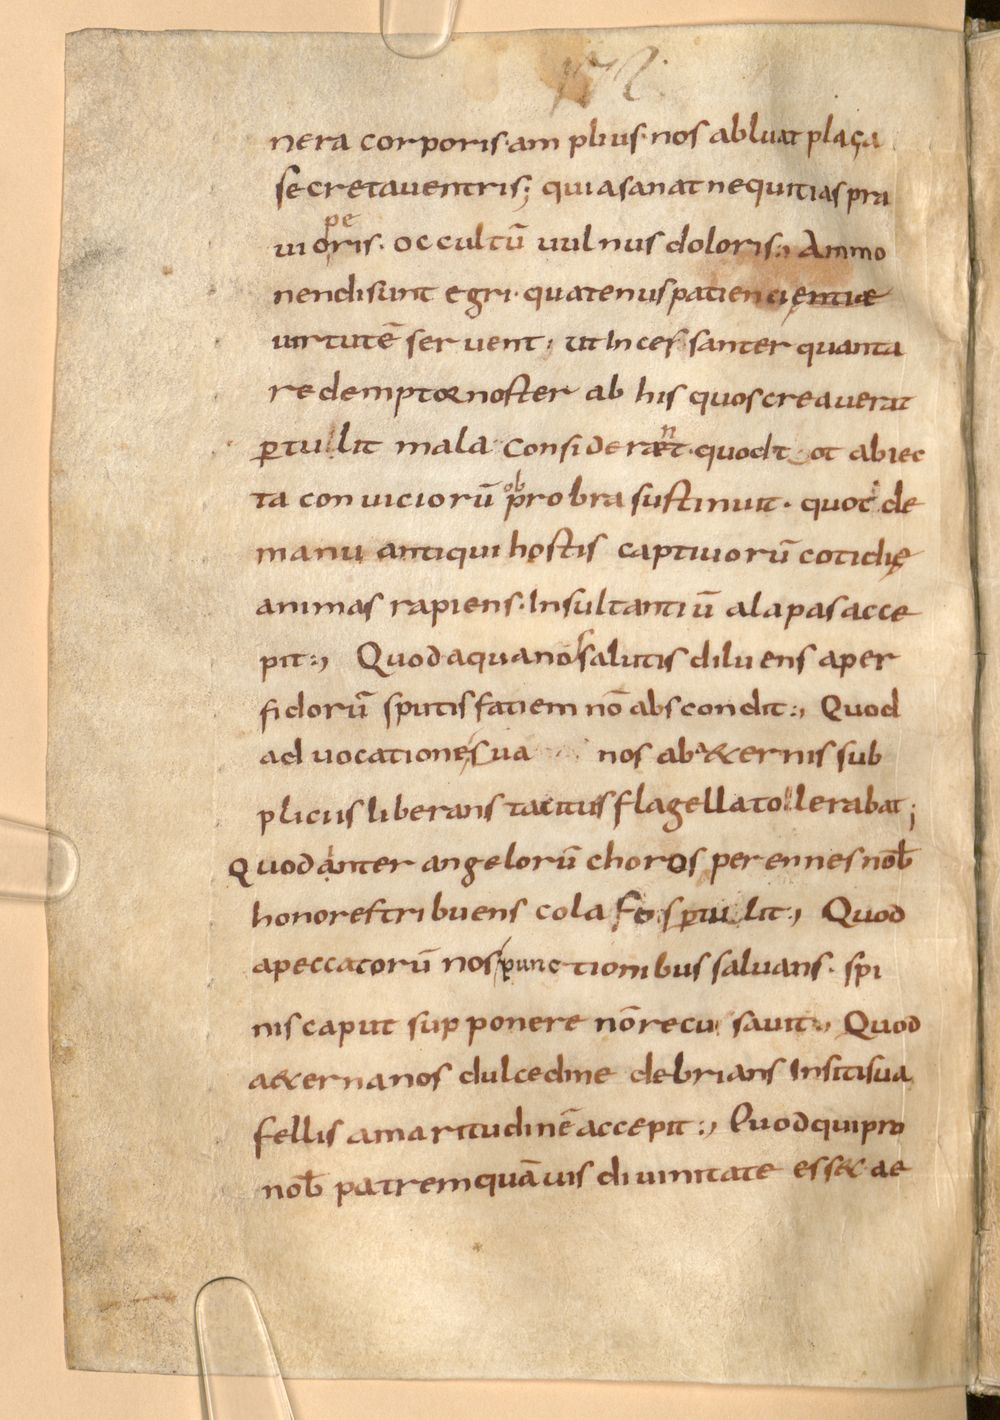 nera corporis· am plius· nos abluat plaga
secreta uentris; quia sanat nequitias pra
ui oris. occultū uulnus doloris:, Ammo
pe
nendi sunt egri· quatenus patien cientiae
uirtutē ser uent; ut In ces santer quanta
redemptor noster ab his quos creauerat
ꝑtullit mala Considerænt· quod tot abiec
ta conuiciorū ob probra sustinuit· quod de
manu antiqui hostis captiuorū cotidię
animas rapiens· Insultantiū alapas acce
pit:, Quod aqua nos salutis diluens a per
fidorū sputis fatiem nō abscondit:, Quod
aduocatione sua nos ab &ernis sub
pliciis liberans tacitus flagella tollerabat;
Quod anter angelorū choros perennes nob̄
honores tribuens colafos ꝑtulit:, Quod
a peccatorū nos punctionibus saluans· spi
nis caput supponere nō recusauit:, Quod
a &erna nos dulcedine debrians In siti sua
fellis amaritudinē accepit:, Quod qui pro
nob̄ patrem quāuis diuinitate ess& ae